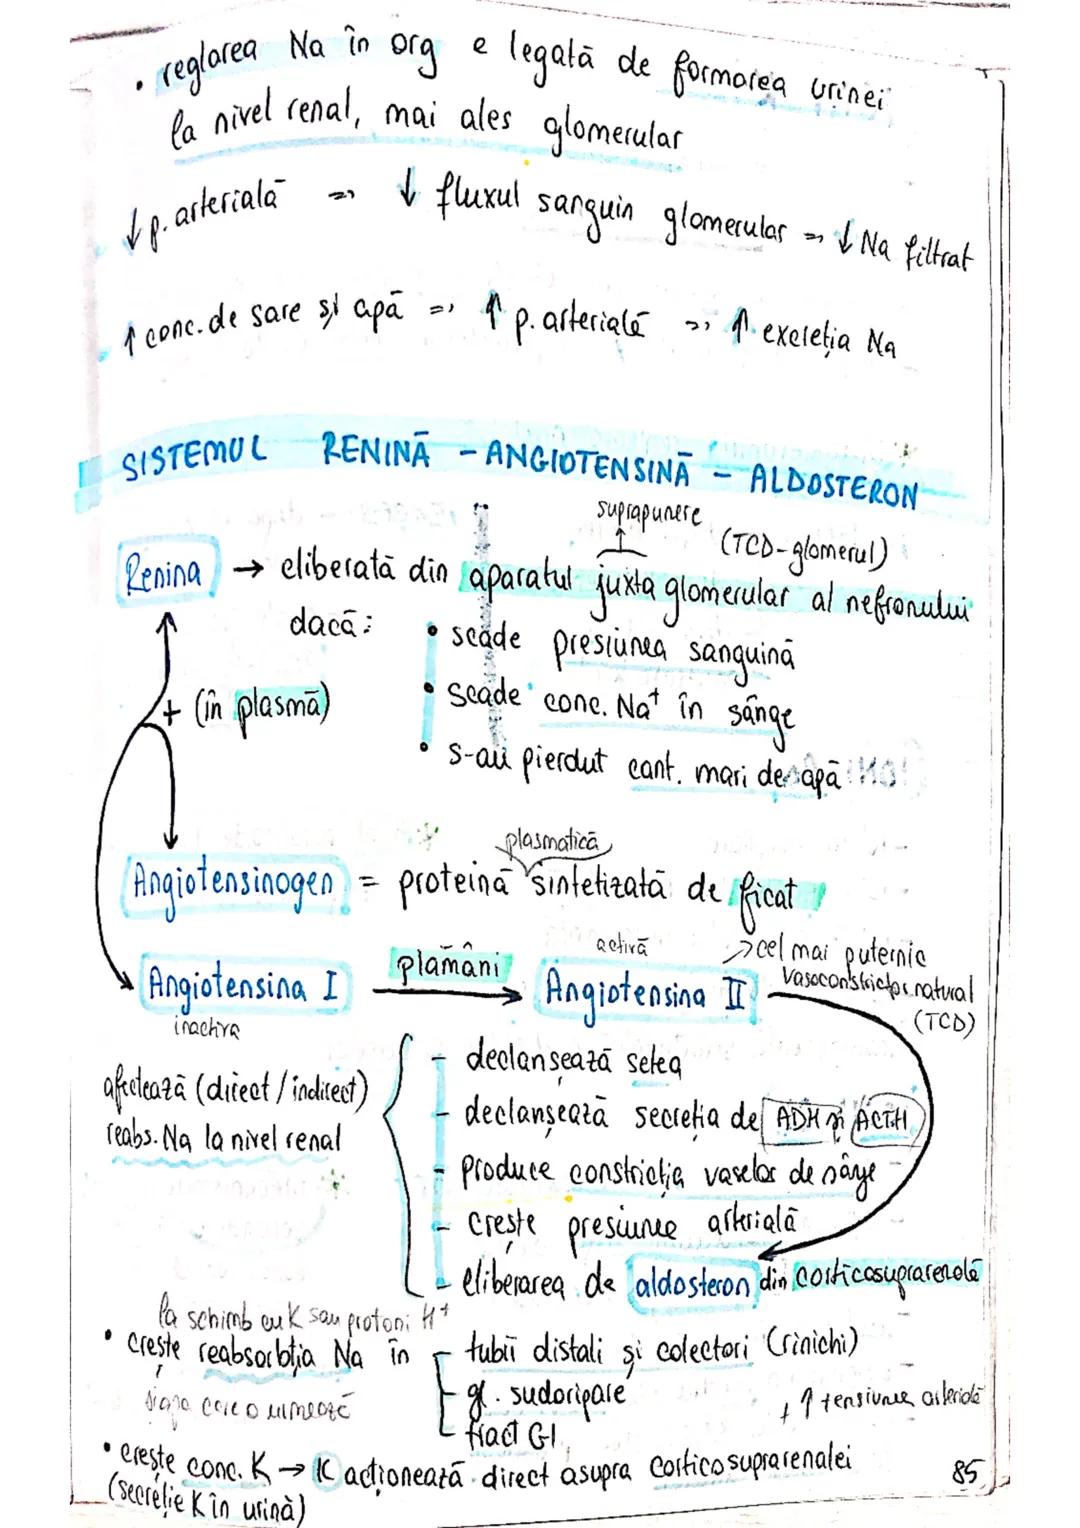 • reglarea Na în org e legată de formarea urinei
la nivel renal, mai ales glomerular
↓ p. arterială => ↓ fluxul sanguin glomerular => ↓ Na filtrat
↑ conc. de sare și apă => ↑ p. arterială => ↑ excreția Na
SISTEMUL RENINĂ - ANGIOTENSINĂ - ALDOSTERON
suprapunere
(TCD-glomerul)
Renina → eliberată din aparatul juxta glomerular al nefronului
dacă: • scade presiunea sanguină
+ (în plasmă) • scade conc. Na+ în sânge
• s-au pierdut cant. mari de apă
plasmatică
Angiotensinogen = proteină sintetizată de ficat
plămâni activă → cel mai puternic
Angiotensina I → Angiotensina II vasoconstrictor natural
inactiva (TCD)
- declansează setea
afectează (direct / indirect) - declanșează secreția de ADH și ACTH
reabs. Na la nivel renal - produce constricția vaselor de sânge
- crește presiunee arterială
- eliberarea de aldosteron din corticosuprarenală
la schimb cu K sau protoni H+
• crește reabsorbția Na în - tubii distali și colectori (rinichi)
și apa care o urmează - gl. sudoripare + ↑ tensiunee arterială
- tract GI
• crește conc. K → K acționează direct asupra corticosuprarenalei
(secreție K în urină)
85